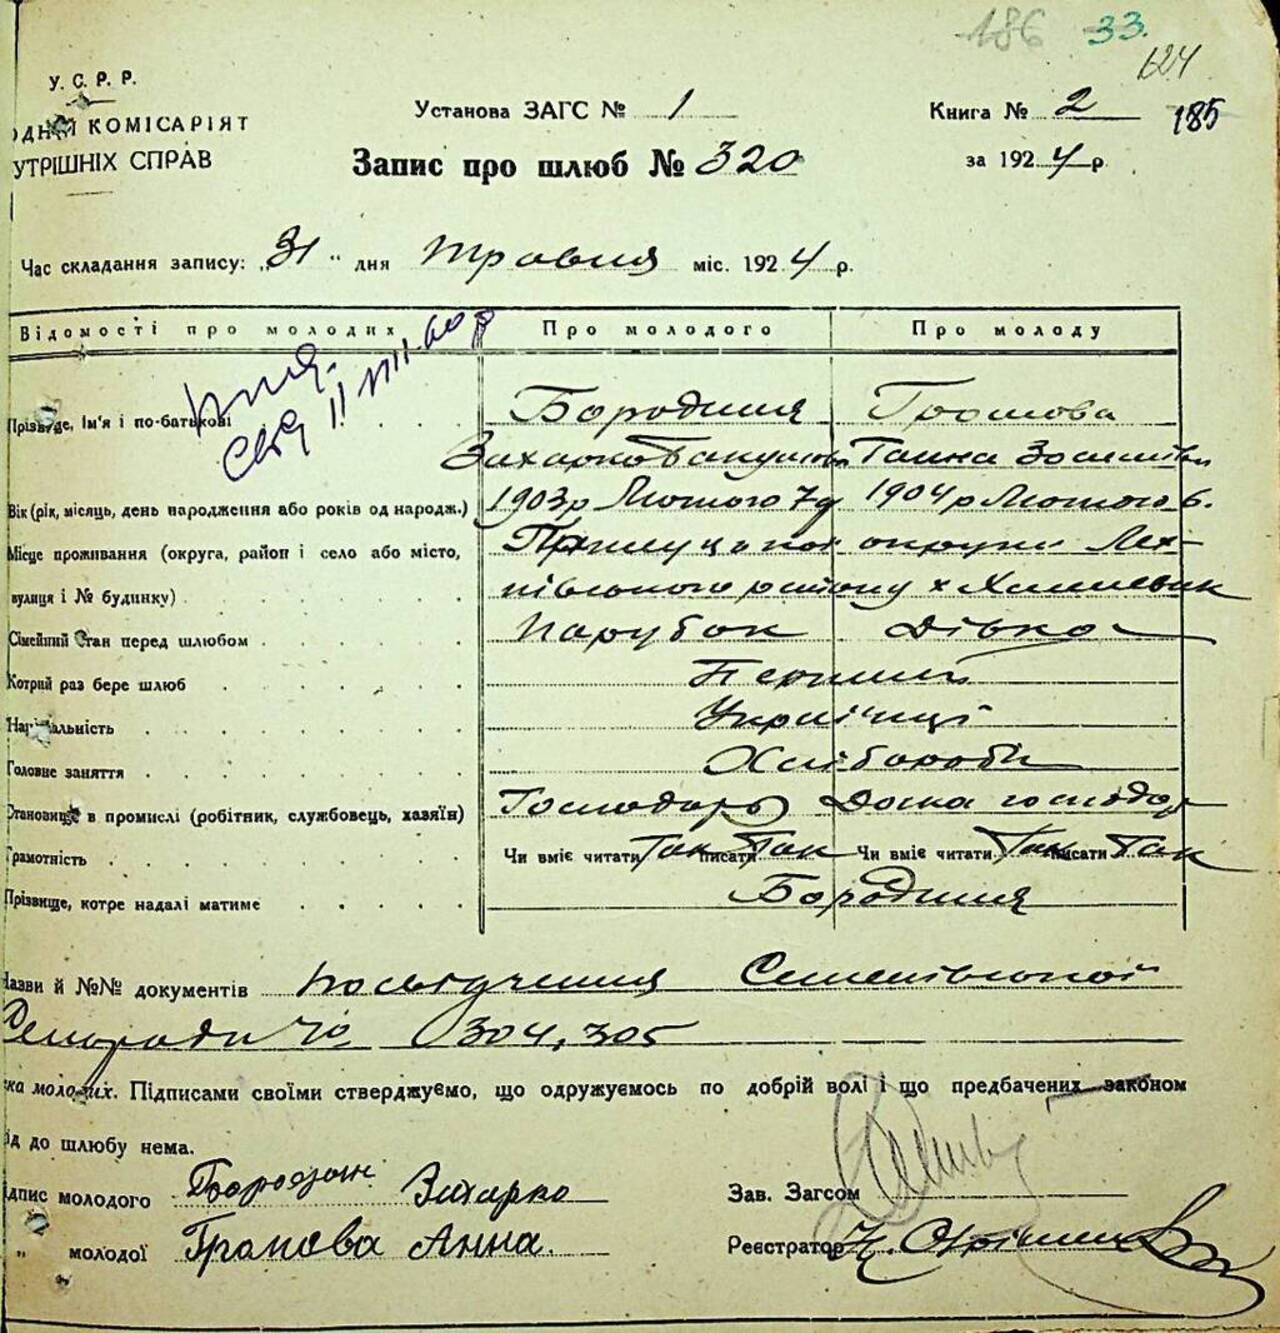 186 33.
124
У. С. Р. Р.
КОМІСАРІЯТ
УТРІШНІХ СПРАВ
Установа ЗАГС № 1
Книга № 2 185
Запис про шлюб № 320
за 1924 р.
Час складання запису: „31" дня травня міс. 1924 р.
Відомості про молодих Про молодого Про молоду
Прізвище, Ім'я і по-батькові Бородиня Громова
Захарко Ганна
Вік (рік, місяць, день народження або років од народж.) 1903 р Лютого 7д 1904 р Лютого 6.
Місце проживання (округа, район і село або місто, Прилуцької округи Лех-
вулиця і № будинку) нівського району х
Сімейний Стан перед шлюбом Парубок Дівка
Котрий раз бере шлюб Перший
Національність Українці
Головне заняття Хлібороби
Становище в промислі (робітник, службовець, хазяїн) Господарь Дочка господар
Грамотність Чи вміє читати Так писати Так Чи вміє читати Так писати Так
Прізвище, котре надалі матиме Бородиня
Назви й №№ документів посвідчення Семенівської
304, 305
молодих. Підписами своїми стверджуємо, що одружуємось по добрій волі і що предбачених законом
до шлюбу нема.
молодого Захарко Зав. Загсом
„ молодої Громова Анна. Реєстратор